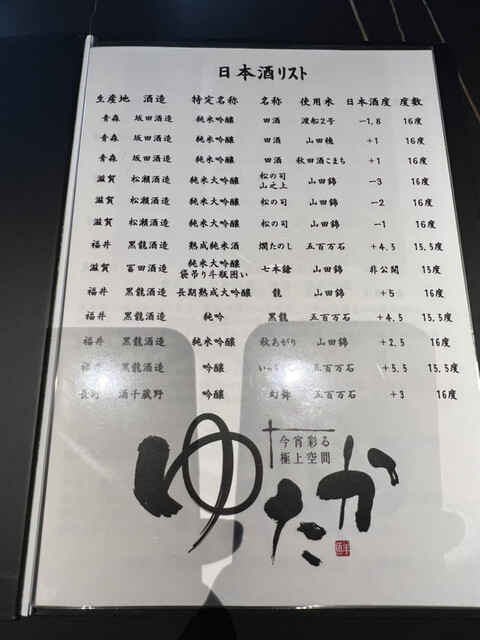 日本酒リスト
生産地 酒造 特定名称 名称 使用米 日本酒度 度数
青森 坂田酒造 純米吟醸 田酒 渡船2号 -1.8 16度
青森 坂田酒造 純米吟醸 田酒 山田穂 +1 16度
青森 坂田酒造 純米吟醸 田酒 秋田酒こまち +1 16度
滋賀 松瀬酒造 純米大吟醸 松の司 山之上 山田錦 -3 16度
滋賀 松瀬酒造 純米大吟醸 松の司 山田錦 -2 16度
滋賀 松瀬酒造 純米大吟醸 松の司 山田錦 -1 16度
福井 黒龍酒造 熟成純米酒 燗たのし 五百万石 +4.5 15.5度
滋賀 冨田酒造 純米大吟醸 袋吊り斗瓶囲い 七本鎗 山田錦 非公開 15度
福井 黒龍酒造 長期熟成大吟醸 龍 山田錦 +5 16度
福井 黒龍酒造 純吟 黒龍 五百万石 +4.5 15.5度
福井 黒龍酒造 純米吟醸 秋あがり 山田錦 +2.5 16度
福井 黒龍酒造 吟醸 五百万石 +5.5 15.5度
長野 酒千蔵野 吟醸 幻舞 五百万石 +3 16度
今宵彩る
極上空間
ゆたか
鮮